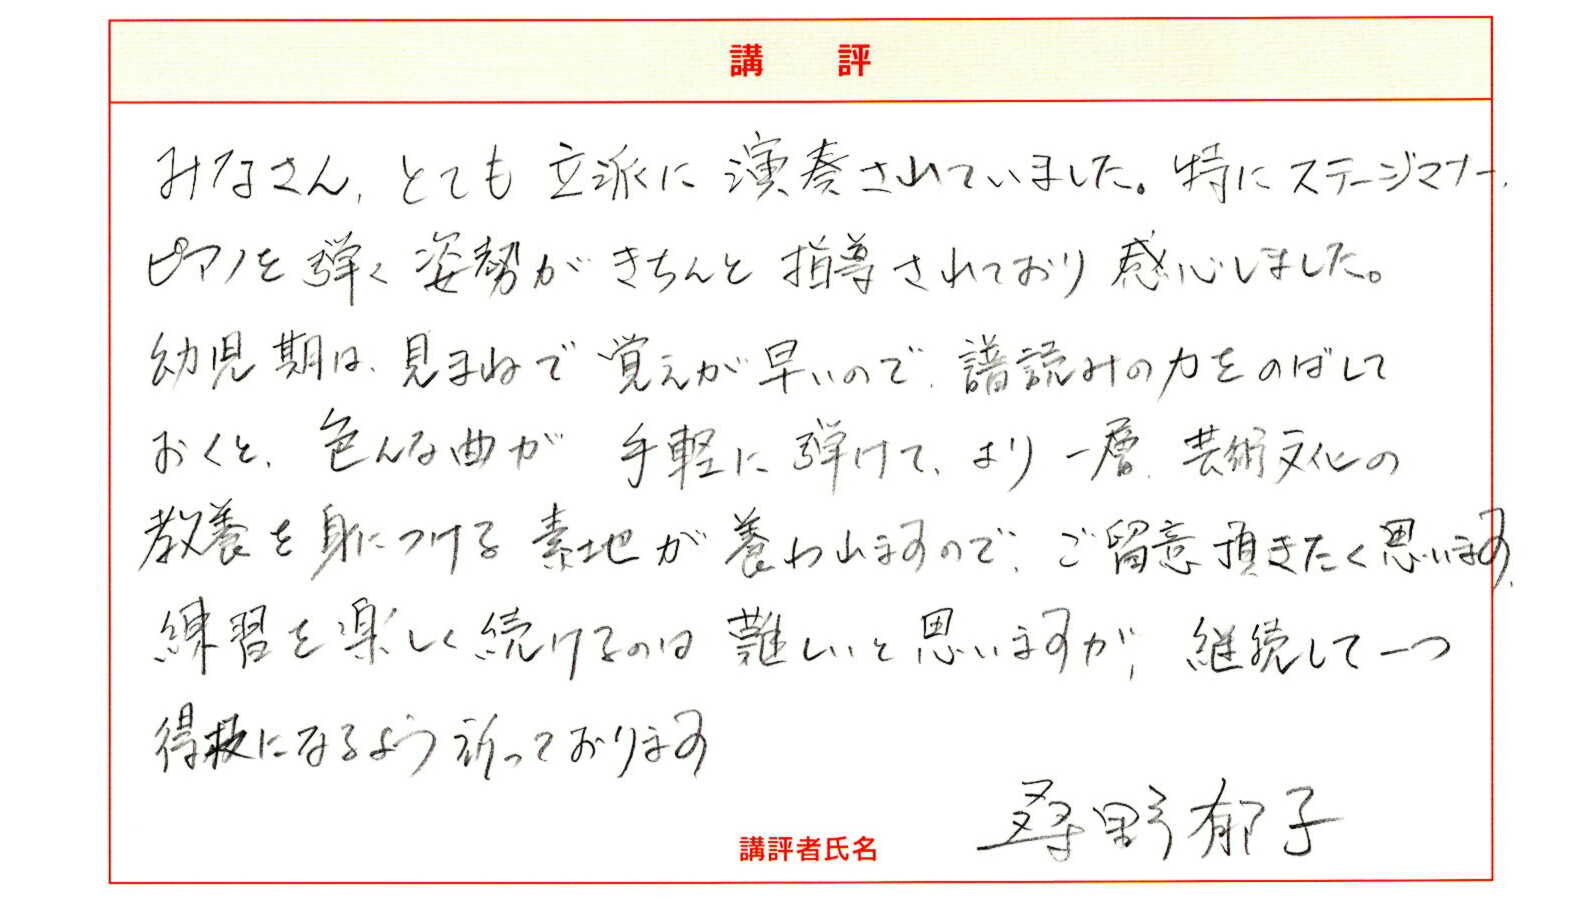 講 評
みなさん、とても立派に演奏されていました。特にステージマナー、
ピアノを弾く姿勢がきちんと指導されており感心しました。
幼児期は、見まねで覚えが早いので、譜読みの力をのばして
おくと、色んな曲が手軽に弾けて、より一層、芸術文化の
教養を身につける素地が養われますので、ご留意頂きたく思います。
練習を楽しく続けるのは難しいと思いますが、継続して一つ
得技になるよう祈っております
講評者氏名 桑野郁子